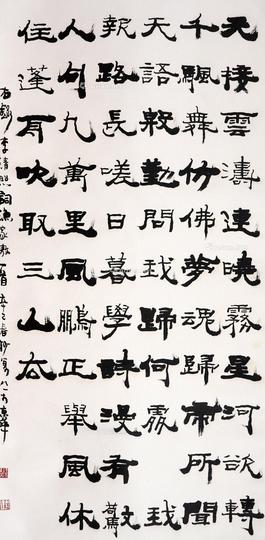 天接雲濤連曉霧星河欲轉
千颿舞仿佛夢魂歸帝所聞
天語殷勤問我歸何處我
報路長嗟日暮學詩漫有驚
人句九萬里風鵬正舉風休
住蓬舟吹取三山去
右錄李清照詞漁家傲一首